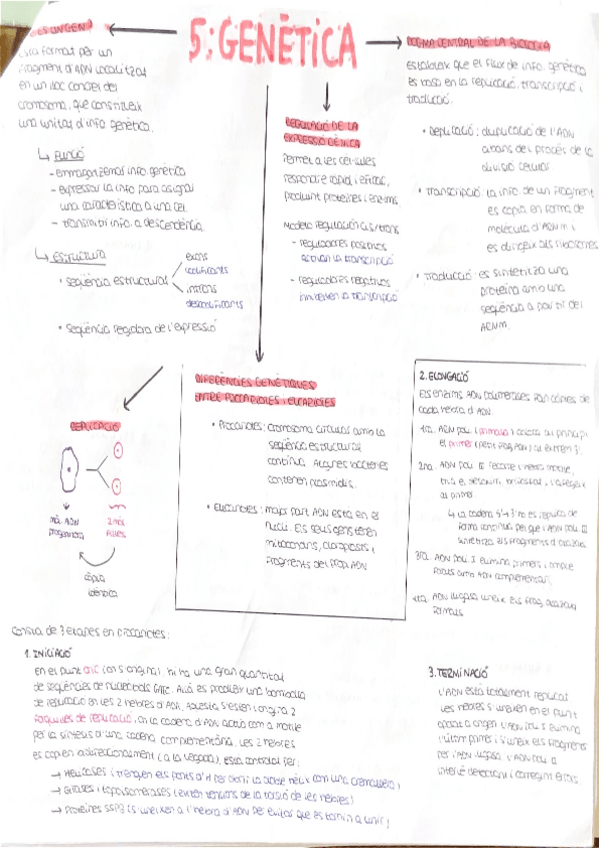 5: GENÈTICA
ÉS UN GEN?
Està format per un
fragment d'ADN localitzat
en un lloc concret del
cromosoma, que constitueix
una unitat d'info genètica.
↳ FUNCIÓ
- emmagatzemar info. genètica
- expressar la info per assignar
una característica a una cel.
- transmetre info. a descendència.
↳ ESTRUCTURA
• seqüència estructural
exons
codificants
introns
descodificants
• seqüència reguladora de l'expressió
REGULACIÓ DE LA
EXPRESSIÓ GÈNICA
Permet a les cèl·lules
respondre ràpid i eficaç,
produint proteïnes i enzims
Modelo regulación cis/trans
- reguladores positivos
activan la transcripció
- reguladores negativos
inhiben la transcripció
DOGMA CENTRAL DE LA BIOLOGIA
estableix que el flux de info. genètica
es basa en la replicació, transcripció i
traducció.
• Replicació: duplicació de l'ADN
abans del procés de la
divisió cel·lular
• Transcripció: la info. de un fragment
es copia en forma de
molècula d'ARNm i
es dirigeix als ribosomes
• Traducció: es sintetitza una
proteïna amb una
seqüència a partir del
ARNm
REPLICACIÓ
mol. ADN
progenitora
2 mol.
filles
còpia
idèntica
DIFERÈNCIES GENÈTIQUES
ENTRE PROCARIOTES I EUCARIOTES
• Procariotes: cromosoma circular amb la
seqüència estructural
contínua. Algunes bacteries
contenen plasmidis.
• Eucariotes: major part ADN està en el
nucli. Els seus gens tenen
mitocondris, cloroplasts i
fragments del propi ADN
2. ELONGACIÓ
Els enzims ADN polimerases fan còpies de
cada hebra d'ADN.
1ra. ADN poli (primasa) al principi
el primer (petit frag. ARN) al extrem 3'.
2na. ADN poli III recorre l'hebra motlle,
al primer.
↳ la cadena 5'→3' no es replica de
forma contínua perquè l'ADN poli III
sintetitza els fragments d'Okazaki
3ra. ADN poli I elimina primers i omple
forats amb ADN complementari
4ta. ADN lligasa uneix els frag. Okazaki
formats
Consta de 3 etapes en procariotes:
1. INICIACIÓ
En el punt oriC (on s'origina), hi ha una gran quantitat
de seqüències de nucleòtids GATC. Allà es produeix una bombolla
de replicació en les 2 hebres d'ADN. Aquesta s'estén i origina 2
forquilles de replicació, on la cadena d'ADN actua com a motlle
per la síntesi d'una cadena complementària. Les 2 hebres
es copien bidireccionalment (a la vegada), està controlat per:
→ Helicases (trenquen els ponts d'H per obrir la doble hèlix com una cremallera)
→ Girases i topoisomerases (eviten tensions de la torsió de les hebres)
→ Proteïnes SSB (s'uneixen a l'hebra d'ADN per evitar que es tornin a unir)
3. TERMINACIÓ
L'ADN està totalment replicat
Les hebres s'uneixen en el punt
oposat a origen. L'ADN poli I elimina
l'últim primer i s'uneix els fragments
per l'ADN lligasa. L'ADN poli II
intervé detectant i corregint errors.